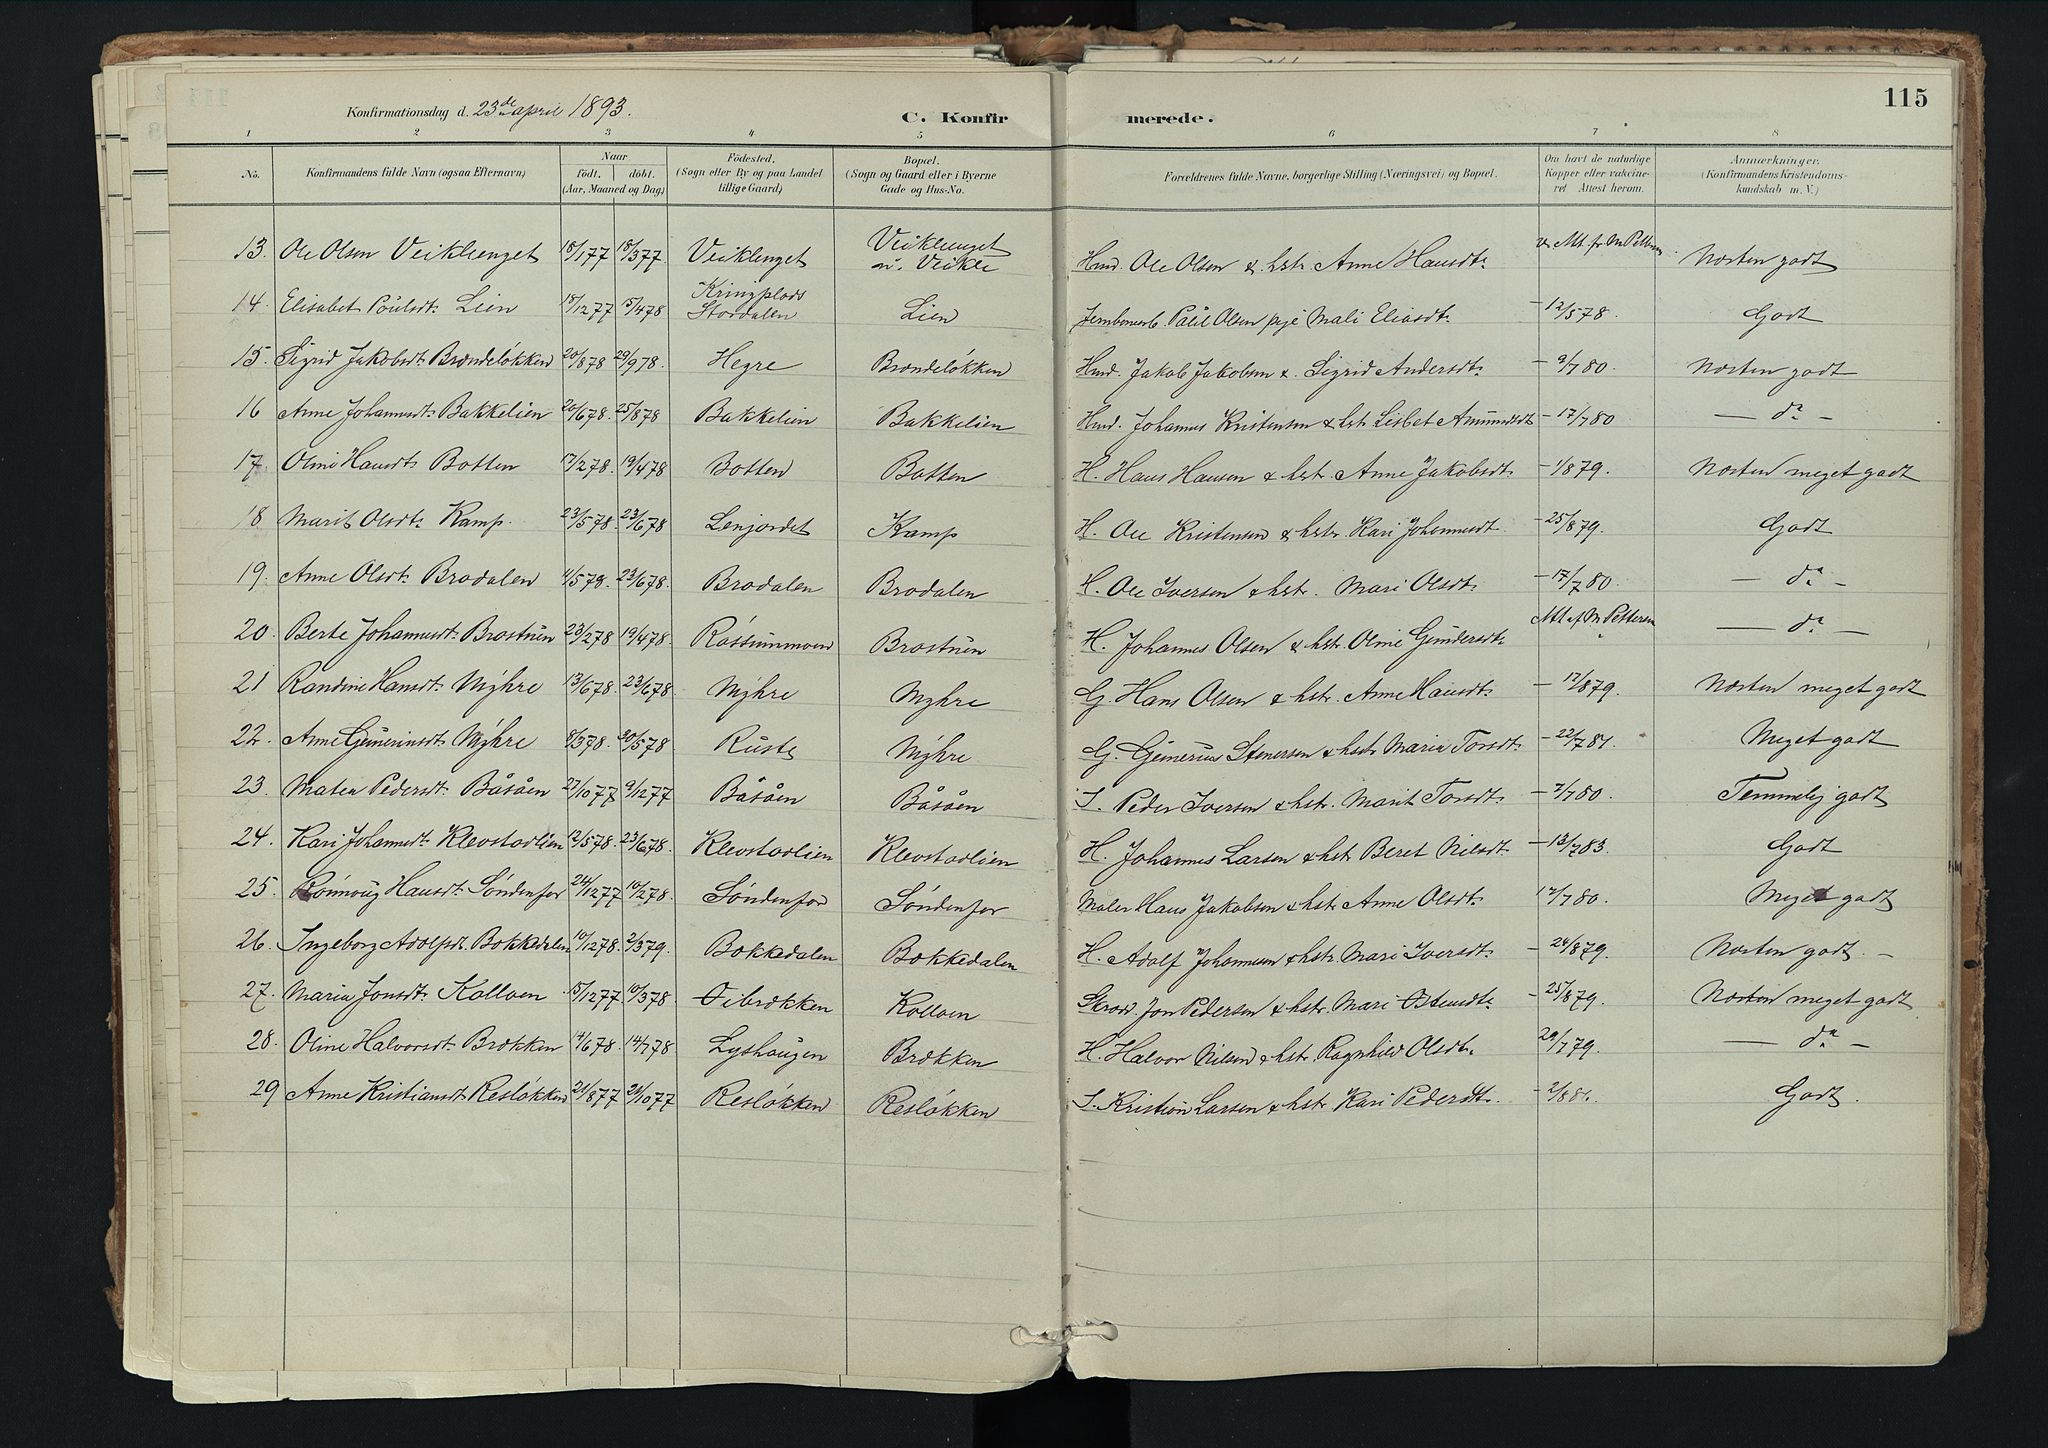 115
Konfirmationsdag d. 23de april 1893.
C. Konfirmerede.
1 2 3 4 5 6 7 8
No. Konfirmandens fulde Navn (ogsaa Efternavn) Naar Født. døbt. (Aar, Maaned og Dag) Fødested. (Sogn eller By og paa Landet tillige Gaard) Bopæl. (Sogn og Gaard eller i Byerne Gade og Hus-No. Forældrenes fulde Navne, borgerlige Stilling (Næringsvei) og Bopæl. Om havt de naturlige Kopper eller vakcineret Attest herom. Anmærkninger. (Konfirmandens Kristendomskundskab m. V.)
13. Ole Olsen Veiklenget 18/1 77 18/3 77 Veiklenget Veiklenget u. Veikle Hmd. Ole Olsen & hstr. Anne Hansdtr. Næsten godt
14. Elisabet Poulsdtr. Lien 18/12 77 15/4 78 Kringplads Stordalen Lien Paul Olsen pige Mali Eliasdtr. – 12/5 78. Godt
15. Sigrid Jakobsdt. Brændeløkken 20/8 78 29/9 78. Hegre Brændeløkken Hmd. Jakob Jakobsen & Sigrid Andersdtr. – 9/7 80. Næsten godt
16 Anne Johannesdt. Bakkelien 20/6 78. 25/8 78 Bakkelien Bakkelien Hmd. Johannes Kristensen & hstr Lisbet Amundsdt – 17/7 80 — do –
17. Oline Hansdt. Botten 17/2 78. 19/4 78 Botten Botten H. Hans Hansen & hstr. Anne Jakobsdt. – 1/8 79. Næsten meget godt
18 Marit Olsdt. Kamp. 23/5 78. 23/6 78 Lenjordet Kamp H. Ole Kristensen & hstr. Kari Johannesdt – 25/8 79. Godt
19. Anne Olsdt. Brodalen 4/5 78. 23/6 78. Brodalen Brodalen H. Ole Iversen & hstr. Mari Olsdt. – 17/7 80. — do –
20. Berte Johannesdt. Brostuen 23/2 78 19/4 78. Røssummoen Brostuen H. Johannes Olsen & hstr. Oline Gundersdt. Att. af M Pettersen — do —
21 Randine Hansdt. Myhre 13/6 78. 23/6 78 Myhre Myhre G. Hans Olsen & hstr. Anne Hansdt. – 17/8 79. Næsten meget godt
22. Anne Gunerinsdt. Myhre 8/3 78. 20/5 78 Ruste Myhre G. Gunerius Stenersen & hstr Maria Torsdt. – 22/7 81. Meget godt
23. Maten Pedersdt. Båsåen 27/10 77 9/12 77 Båsåen Båsåen I. Peder Iversen & hstr. Marit Torsdt. – 7/7 80. Temmelig godt
24. Kari Johannesdt. Klevstadlien 12/5 78. 23/6 78. Klevstadlien Klevstadlien H. Johannes Larsen & hstr Beret Nilsdt. – 13/7 83. Godt
25. Rønnoug Hansdt. Søndenfor 24/12 77 10/2 78. Søndenfor Søndenfor Maler Hans Jakobsen & hstr. Anne Olsdt. 17/7 80. Meget godt
26. Ingeborg Adolfsdt. Bokkedalen 10/12 78. 2/3 79. Bokkedalen Bokkedalen H. Adolf Johannesen & hstr. Mari Iversdt. – 24/8 79. Næsten godt. –
27. Maria Jonsdt. Kolloen 15/12 77. 10/3 78 Øibrækken Kolloen Skræd. Jon Pedersen & hstr. Mari Østensdtr – 25/8 79. Næsten meget godt
28. Oline Halvorsdt. Brækken 14/6 78. 14/7 78 Lyshaugen Brækken H. Halvor Nilsen & hstr. Ragnhild Olsdt. 29/7 79. — do –
29 Anne Kristiansdt. Resløkken 21/8 77 21/10 77 Resløkken Resløkken I. Kristian Larsen & hstr. Kari Pedersdt. – 2/8 81. Godt.